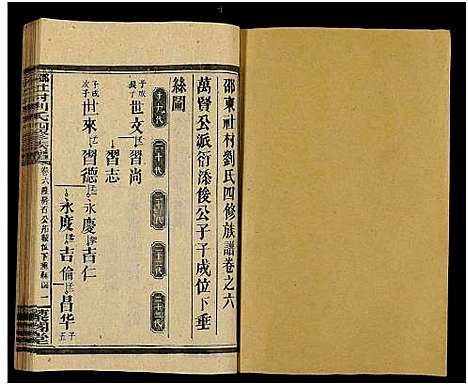 邵東社村劉氏四修族譜卷之六
萬賢公派衍添俊公子子成位下垂
絲圖
十九代
二十代
二十一代
二十二代
二十三代
子成長子
世文
習尚
習志
子成次子
世來
習德
永慶
吉仁
永度
吉倫
昌华
子五